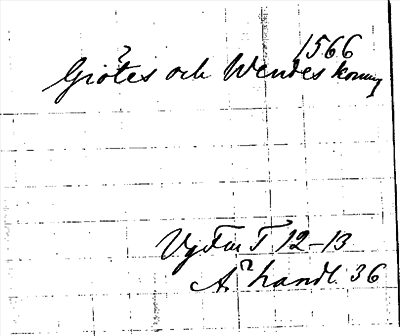 1566
Giötes och Wendes konung
Vg Fur T 12-13
Ä handl. 36